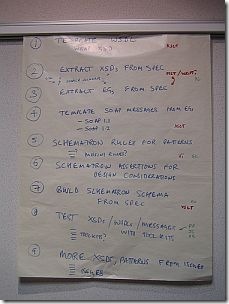 1 TEMPLATE WSDL
WHAT XSD? XSLT
2 EXTRACT XSDs FROM SPEC
3 EXTRACT EGs FROM SPEC
4 TEMPLATE SOAP MESSAGES FROM EGs
- SOAP 1.1
- SOAP 1.2 XSLT
5 SCHEMATRON RULES FOR PATTERNS
6 SCHEMATRON ASSERTIONS FOR
DESIGN CONSIDERATIONS
7 BUILD SCHEMATRON SCHEMA
FROM SPEC XSLT
8 TEST XSDs/WSDLs/MESSAGES
TOOLKITS? WITH TOOLKITS
9 MORE XSDs, PATTERNS FROM ISSUES
ISSUES